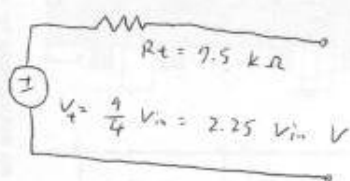 Rt = 7.5 kΩ
Vt = 9/4 Vin = 2.25 Vin V